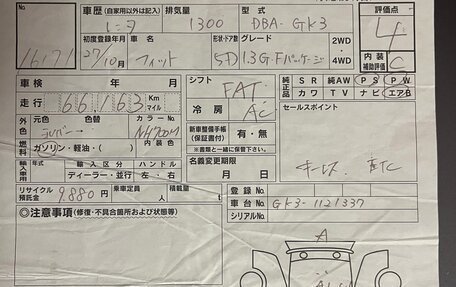 車歴(自家用以外は記入) 排気量 型式 評価点
レンタ 1300 DBA-GK3 4
初度登録年月 車名 形状・ドア グレード 2WD・4WD 内装補助評価
16171 27/10月 フィット 5D 1.3G・Fパッケージ C
車検 年 月 シフト FAT 純正品 SR 純AW PS PW
カワ TV ナビ エアB
走行 66163 Km マイル 冷房 AC セールスポイント
外色 元色 色替 カラーNo. NH700M 新車整備手帳(保証書付) 有・無
シルバー → 内装色 ※書類と一緒に保管して下さい。
燃料 ガソリン・軽油・( ) 名義変更期限 キーレス ETC
輸入車用 輸入区分 ハンドル 月 日
ディーラー・並行 左・右
リサイクル預託金 9,880円 乗車定員 人 積載量 t 登録No.
車台No. GK3-1121337
◎注意事項(修復・不具合箇所および状態等) シリアルNo.
A